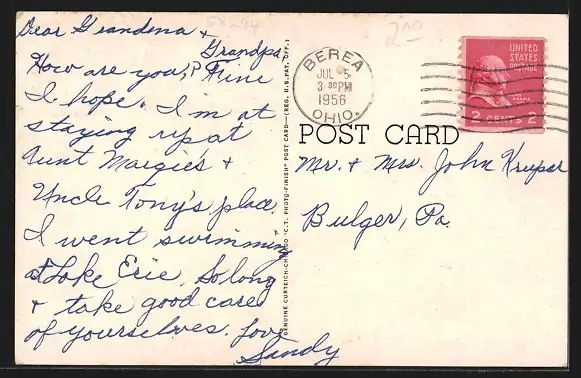 Dear Grandma +
Grandpa,
How are you? Fine
I hope. I'm at
staying up at
Aunt Margie's +
Uncle Tony's place.
I went swimming
at Lake Erie. So long
+ take good care
of yourselves. Love
Sandy
GENUINE CURTEICH-CHICAGO "C.T. PHOTO-FINISH" POST CARD—(REG. U.S. PAT. OFF.)
BEREA
JUL 5
3 30 PM
1956
OHIO.
UNITED
STATES
POSTAGE
2 CENTS 2
POST CARD
Mr. + Mrs. John Krupar
Bulger, Pa.